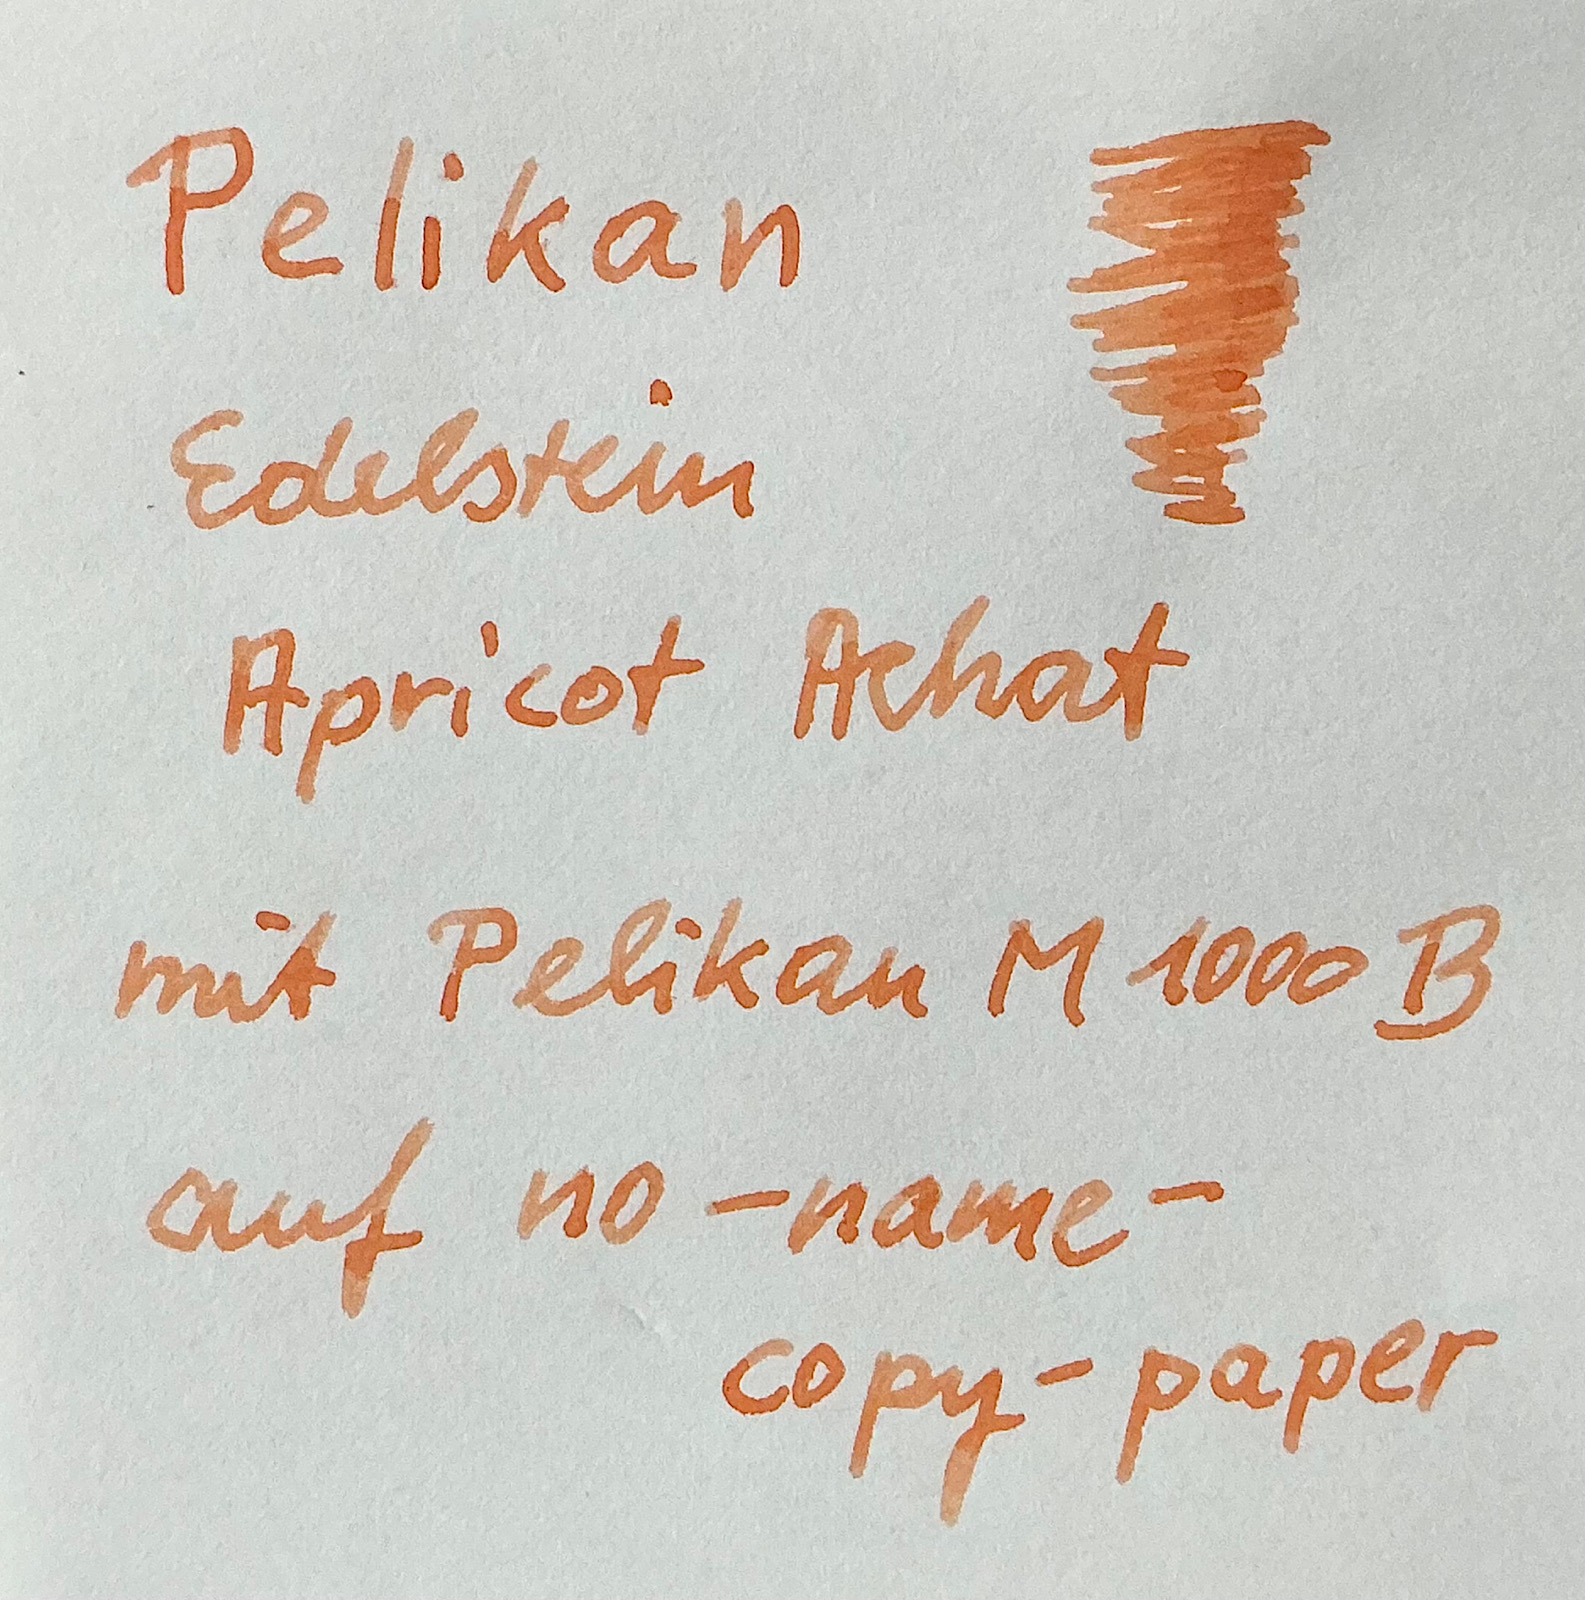 Pelikan
Edelstein
Apricot Achat
mit Pelikan M 1000 B
auf no-name-
copy-paper